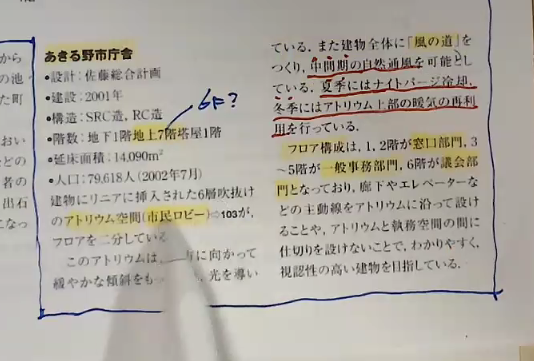 あきる野市庁舎
•設計：佐藤総合計画
•建設：2001年
•構造：SRC造, RC造
•階数：地下1階地上7階塔屋1階
6F?
•延床面積：14,090m²
•人口：79,618人(2002年7月)
建物にリニアに挿入された6層吹抜け
のアトリウム空間(市民ロビー)⇨103が,
フロアを二分している
このアトリウムは, に向かって
緩やかな傾斜をも 光を導い
ている. また建物全体に「風の道」を
つくり, 中間期の自然通風を可能とし
ている. 夏季にはナイトパージ冷却,
冬季にはアトリウム上部の暖気の再利
用を行っている.
フロア構成は, 1, 2階が窓口部門, 3
～5階が一般事務部門, 6階が議会部
門となっており, 廊下やエレベーターな
どの主動線をアトリウムに沿って設け
ることや, アトリウムと執務空間の間に
仕切りを設けないことで, わかりやすく,
視認性の高い建物を目指している.
から
の池
た町
おい
どの
者の
出石
になっ